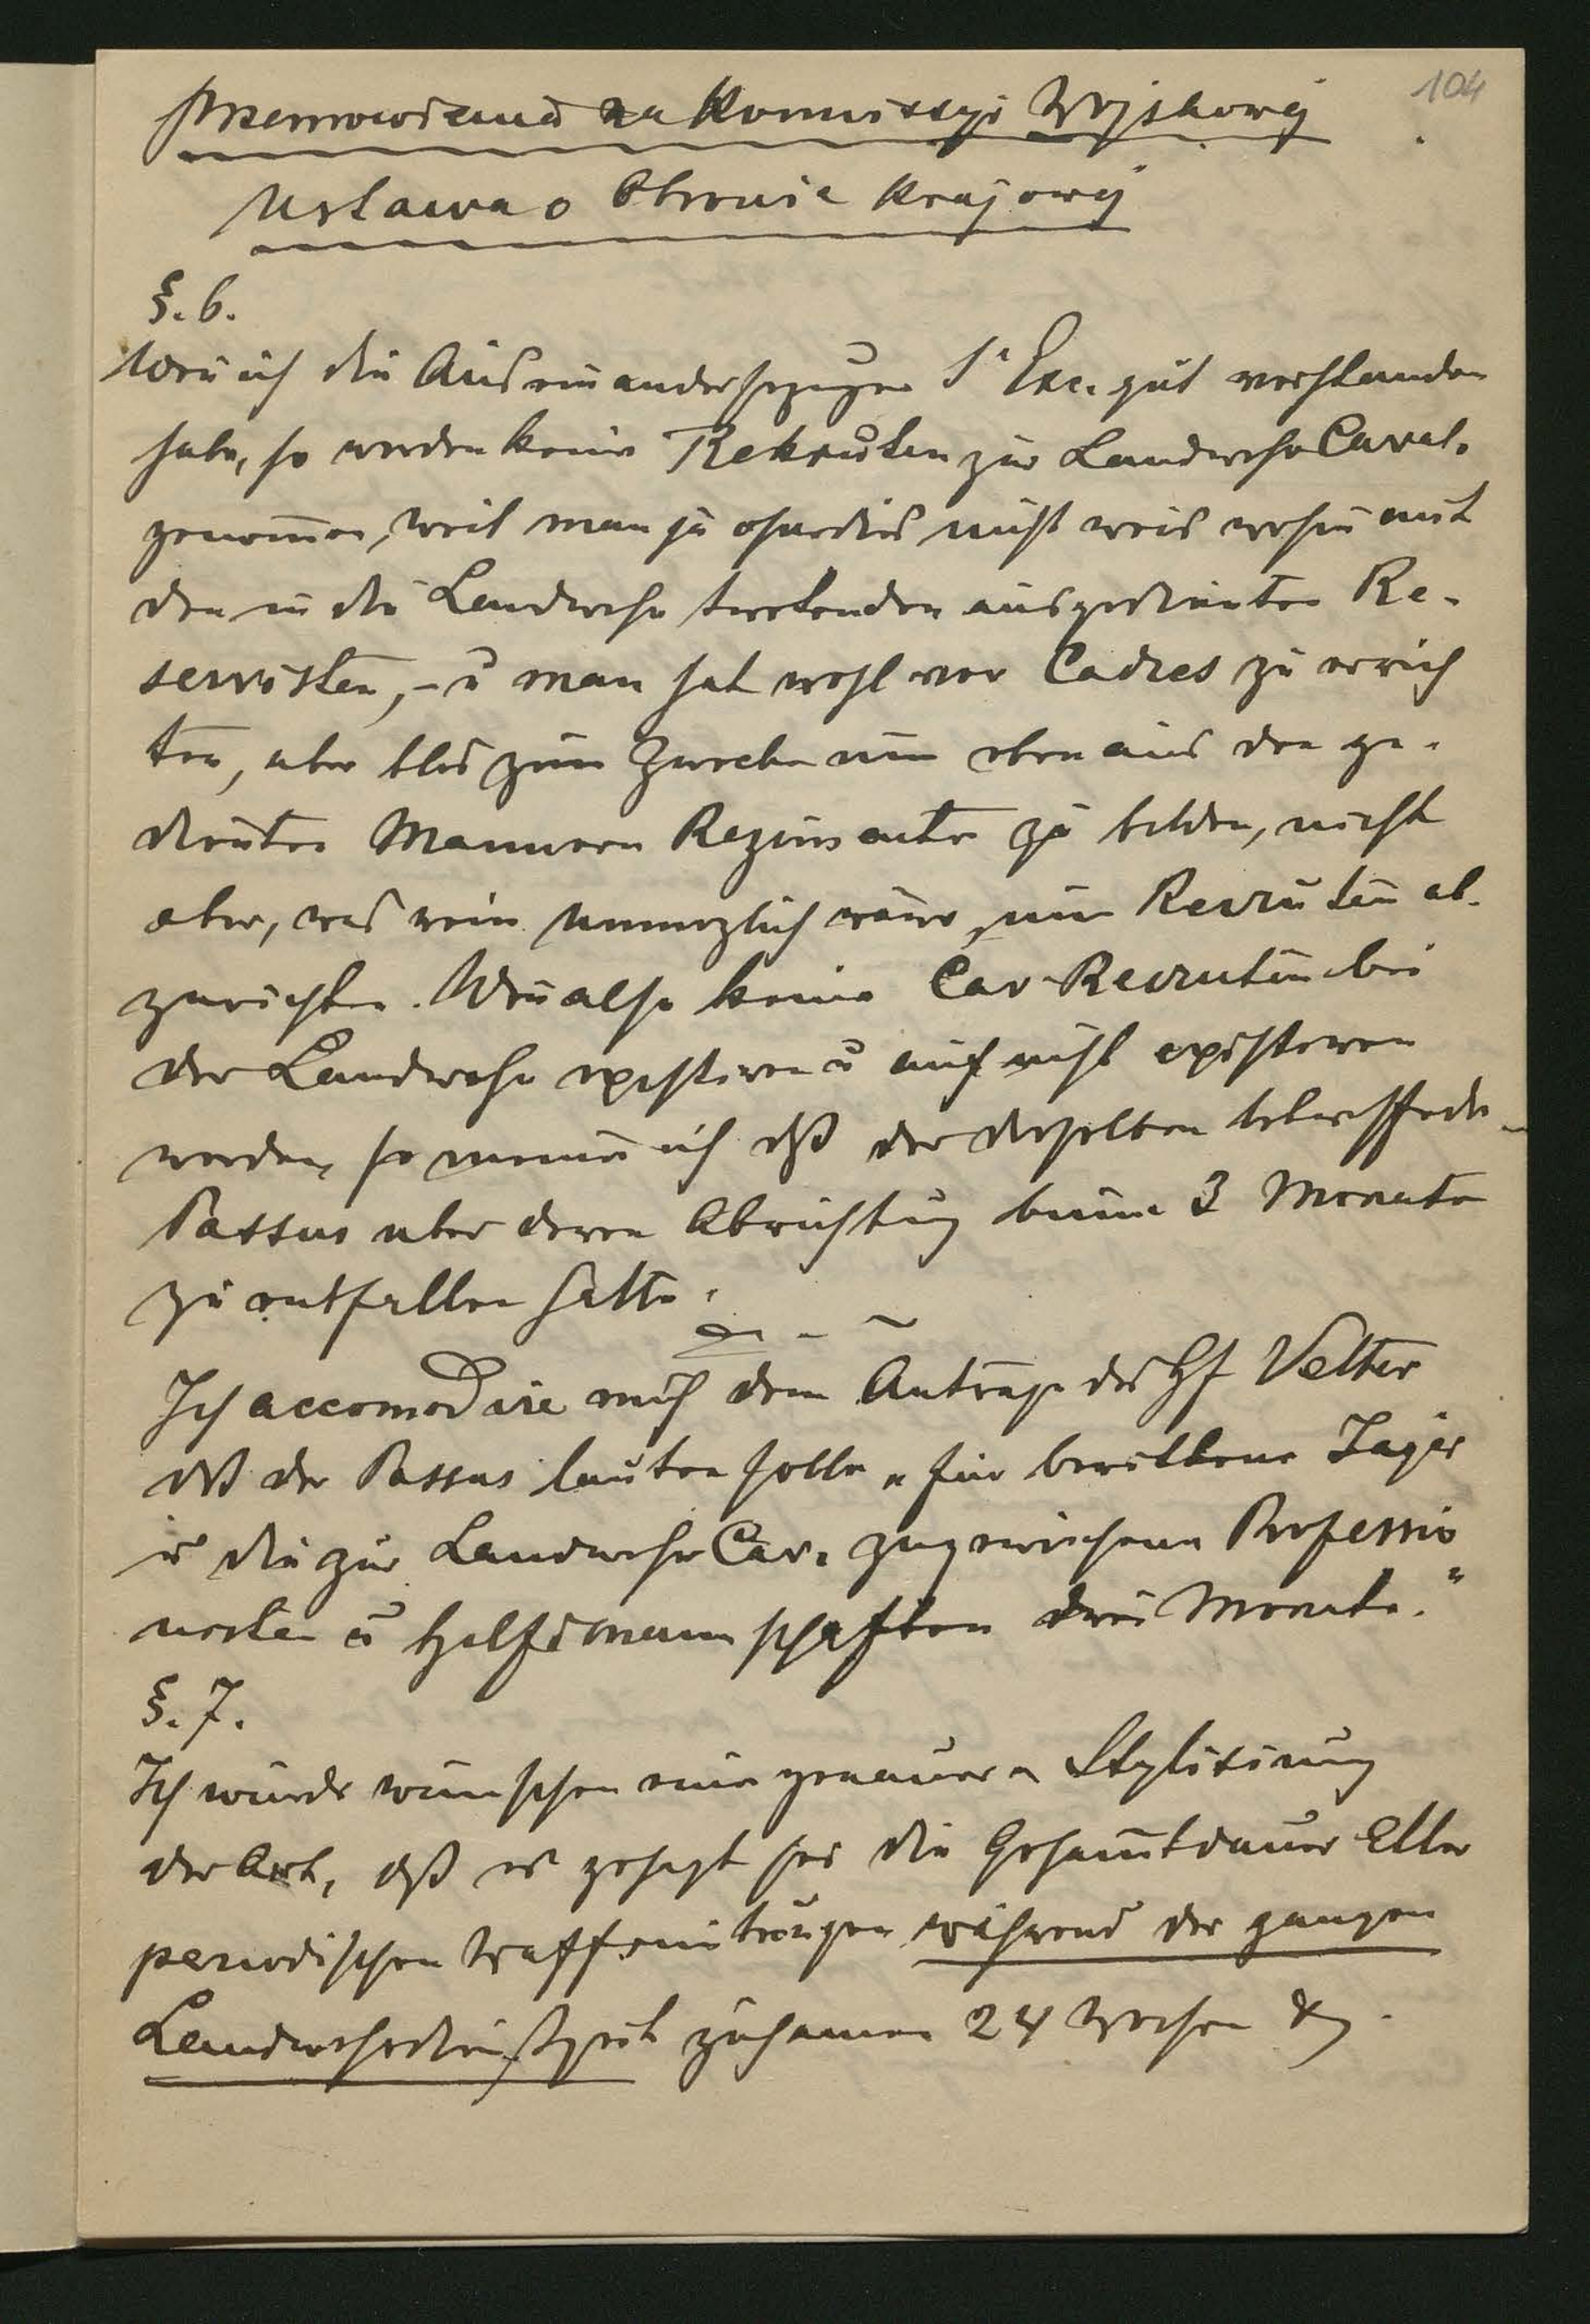 104
Przemowienia na Kommissyi Wojskowej
Ustawa o Obronie Krajowej
§. 6.
Wen̄ ich die Auseinandersetzungen Sr Exc. gut verstanden
habe, so werden keine Rekruten zur Landwehr Caval.
genom̄en, weil man ja ohnedies nicht weis wohin mit
den in die Landwehr tretenden ausgedienten Re-
servisten, – u man hat wohl vor Cadres zu errich
ten, aber blos zum Zwecke um eben aus den ge-
dienten Mannern Regimenter zu bilden, nicht
aber, was rein unmoglich wäre, um Recruten ab-
zurichten. Wen̄ also keine Cav. Recruten bei
der Landwehr existiren u auch nicht existiren
werden, so meine ich dß der dieselben betreffende
Passus uber deren Abrichtung binnen 3 Monaten
zu entfallen hatte.
Ich accomodire mich dem Antrage des Gf Vetter
dß der Passus lauten solle „für berittene Jager
u die zur Landwehr Cav. zugewiesenen Professio
nisten u Hilfsmannschaften drei Monate."
§. 7.
Ich würde wünschen eine genauere Stylisirung
der Art, dß es gesagt sei die Gesam̄tdauer aller
periodischen Waffenübungen während der ganzen
Landwehrdienstzeit zusamen 24 Wochen &